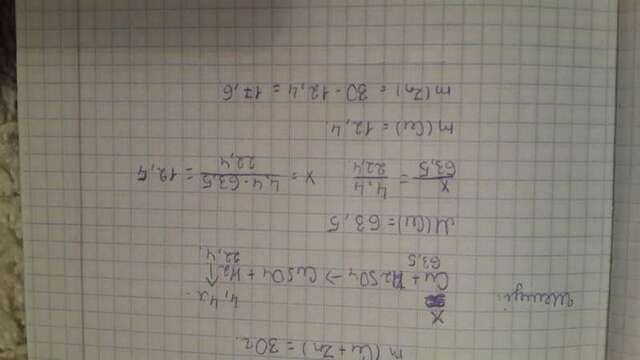 m(Cu+Zn) = 30г.
x 4,4л.
Шешуі: Cu + H2SO4 → CuSO4 + H2↑
63,5 22,4
M(Cu) = 63,5
x/63,5 = 4,4/22,4 x = 4,4·63,5/22,4 = 12,4
m(Cu) = 12,4.
m(Zn) = 30 - 12,4 = 17,6